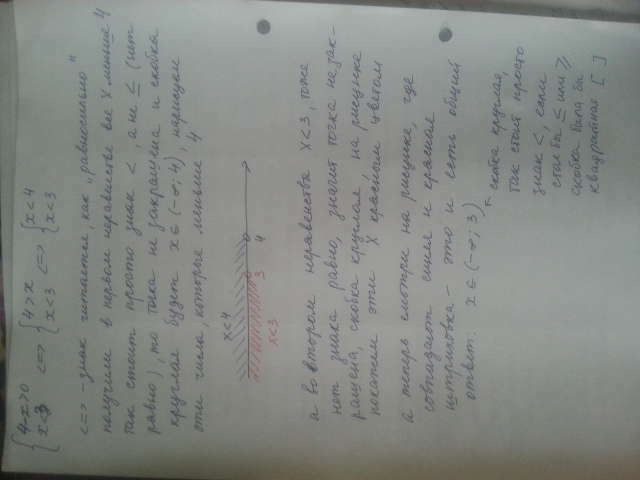 {4-x>0 <=> {4>x <=> {x<4
{x<3 {x<3 {x<3
<=> - знак читается, как "равносильно"
получим в первом неравенстве все x меньше 4
так стоит просто знак <, а не ≤ (нет
равно), то точка не закрашена и скобка
круглая будет x∈(-∞; 4), нарисуем
эти числа, которые меньше 4
x<4
3 4
x<3
а во втором неравенства x<3, тоже
нет знака равно, значит точка не зак-
рашена, скобка круглая, на рисунке
покажем эти x красным цветом
а теперь смотри на рисунке, где
совпадают синяя и красная
штриховка - это и есть общий
ответ: x∈(-∞; 3)
скобка круглая,
так стоит просто
знак <, если
стоял бы ≤ или ≥
скобка была бы
квадратная [ ]